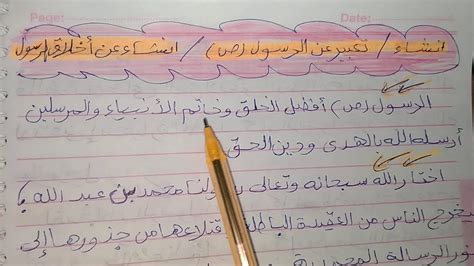 Page: Date:
انشاء / تعبير عن الرسول (ص) / انشاء عن أخلاق الرسول
الرسول (ص) أفضل الخلق وخاتم الأنبياء والمرسلين
أرسله الله بالهدى ودين الحق
اختار الله سبحانه وتعالى رسولنا محمد بن عبد الله
ليخرج الناس من العقيدة الباطلة من جذورها إلى
نور الرسالة